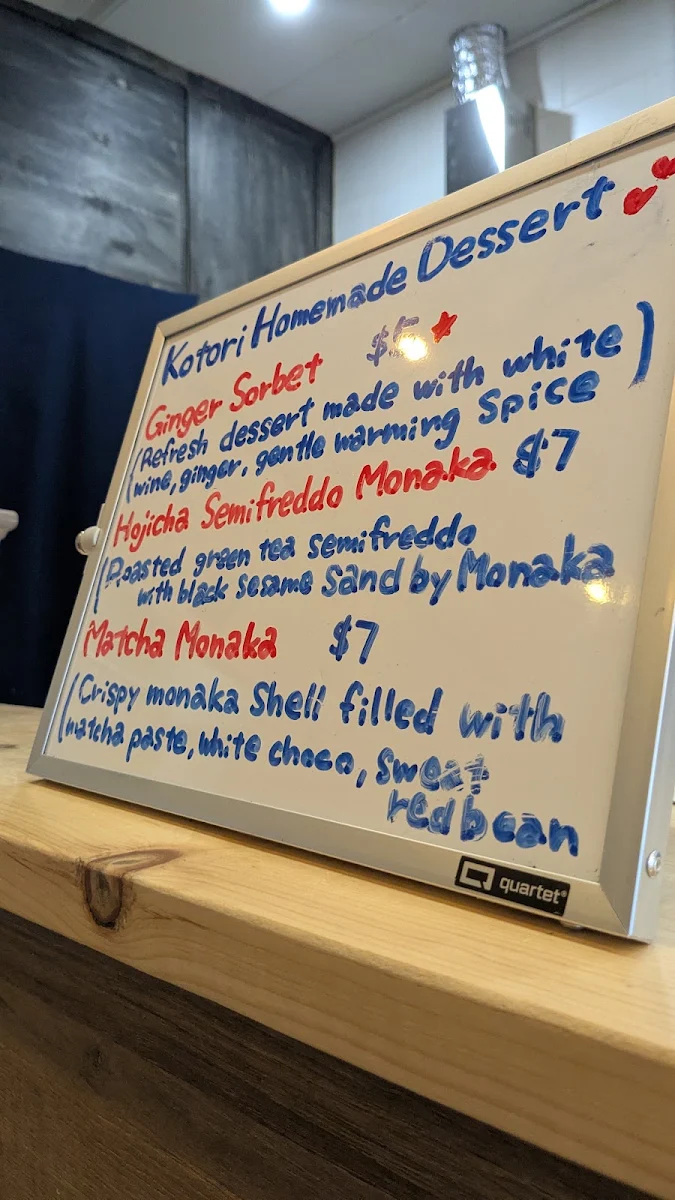 Kotori Homemade Dessert
Ginger Sorbet $5
(Refresh dessert made with white
wine, ginger, gentle warming Spice)
Hojicha Semifreddo Monaka $7
(Roasted green tea semifreddo
with black Sesame Sand by Monaka
Matcha Monaka $7
(Crispy monaka Shell filled with
matcha paste, white choco, Sweat
red bean
quartet®